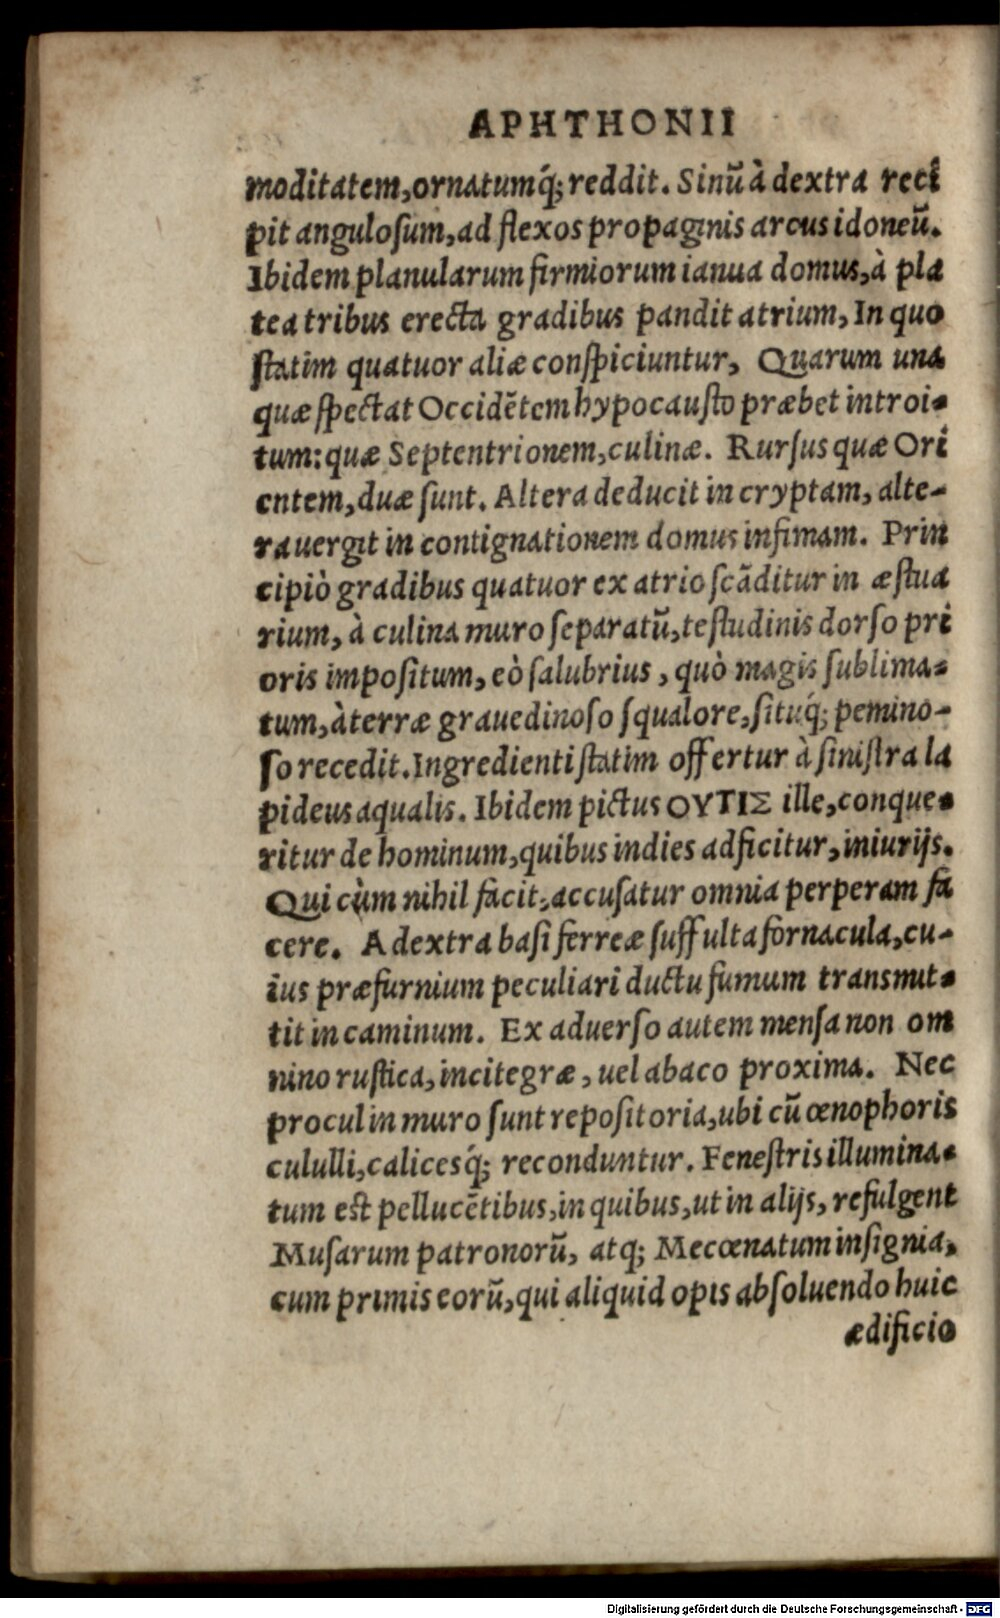 APHTHONII
moditatem,ornatumq́; reddit. Sinũ à dextra reci
pit angulosum, ad flexos propaginis arcus idoneũ.
Ibidem planularum firmiorum ianua domus, à pla
tea tribus erecta gradibus pandit atrium, In quo
statim quatuor aliæ conspiciuntur, Quarum una
quæ spectat Occidẽtem hypocausto præbet introi-
tum: quæ Septentrionem, culinæ. Rursus quæ Ori
entem, duæ sunt. Altera deducit in cryptam, alte-
ra uergit in contignationem domus infimam. Prin
cipiò gradibus quatuor ex atrio scãditur in æstua
rium, à culina muro separatũ, testudinis dorso pri
oris impositum, eò salubrius, quò magis sublima-
tum, à terræ grauedinoso squalore, situq́; pemino-
so recedit. Ingredienti statim offertur à sinistra la
pideus aqualis. Ibidem pictus ΟΥΤΙΣ ille, conque-
ritur de hominum, quibus indies adficitur, iniurijs.
Qui cùm nihil facit, accusatur omnia perperam fa
cere. A dextra basi ferreæ suffulta fornacula, cu-
ius præfurnium peculiari ductu fumum transmit-
tit in caminum. Ex aduerso autem mensa non om
nino rustica, incitegræ, uel abaco proxima. Nec
procul in muro sunt repositoria, ubi cũ œnophoris
cululli, calicesq́; reconduntur. Fenestris illumina-
tum est pellucẽtibus, in quibus, ut in alijs, refulgent
Musarum patronorũ, atq; Mecœnatum insignia,
cum primis eorũ, qui aliquid opis absoluendo huic
ædificio
Digitalisierung gefördert durch die Deutsche Forschungsgemeinschaft - DFG